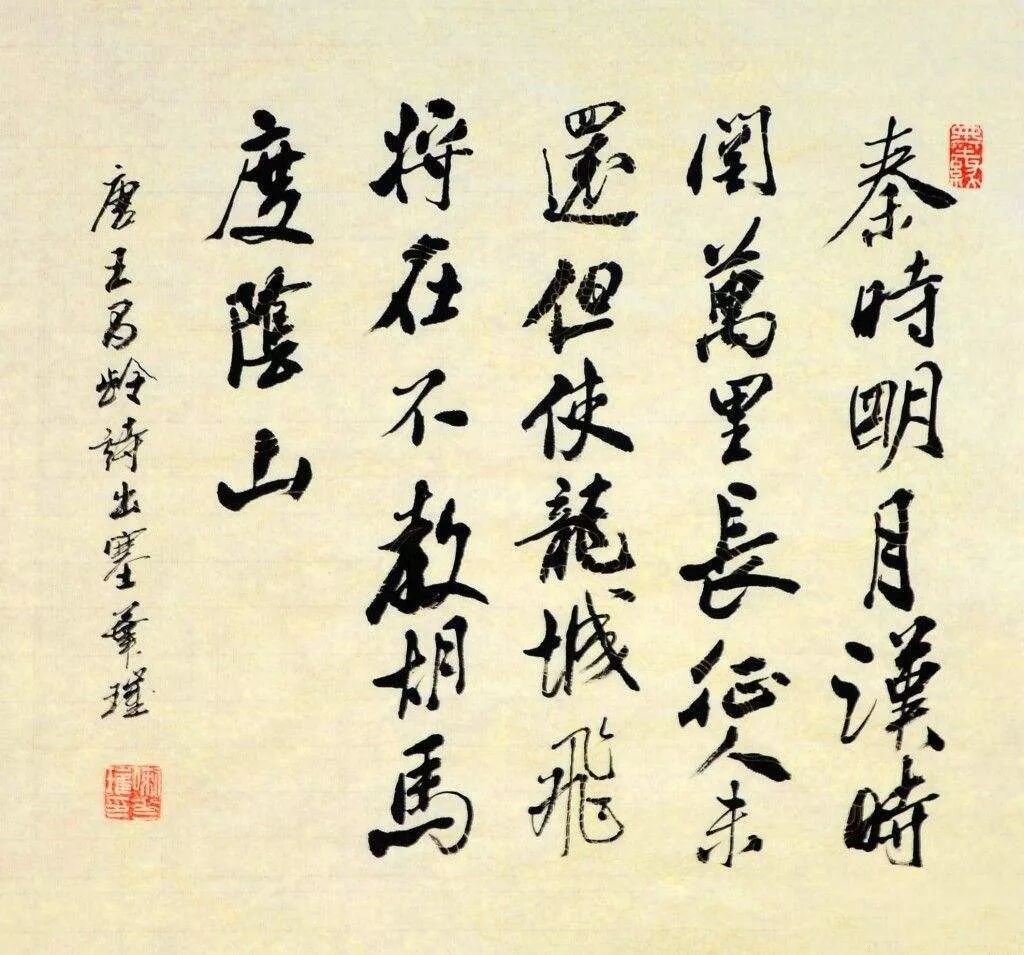 秦時明月漢時
關萬里長征人未
還但使龍城飛
將在不教胡馬
度陰山
唐王昌齡詩出塞華